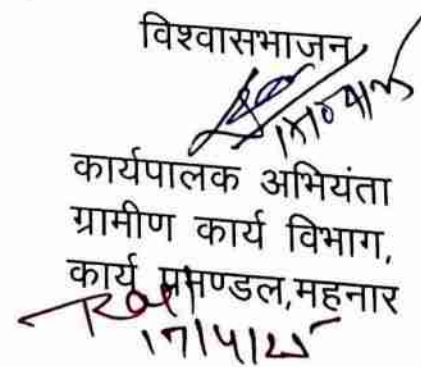 विश्वासभाजन
कार्यपालक अभियंता
ग्रामीण कार्य विभाग,
कार्य प्रमण्डल,महनार
17/4/25